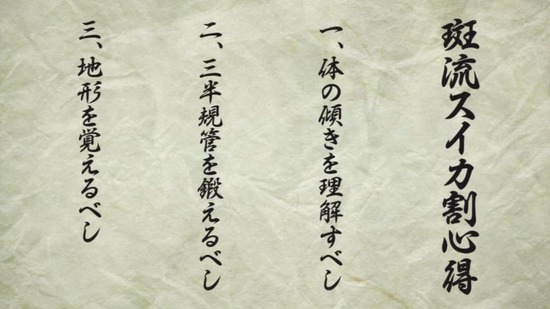 斑流スイカ割心得
一、体の傾きを理解すべし
二、三半規管を鍛えるべし
三、地形を覚えるべし